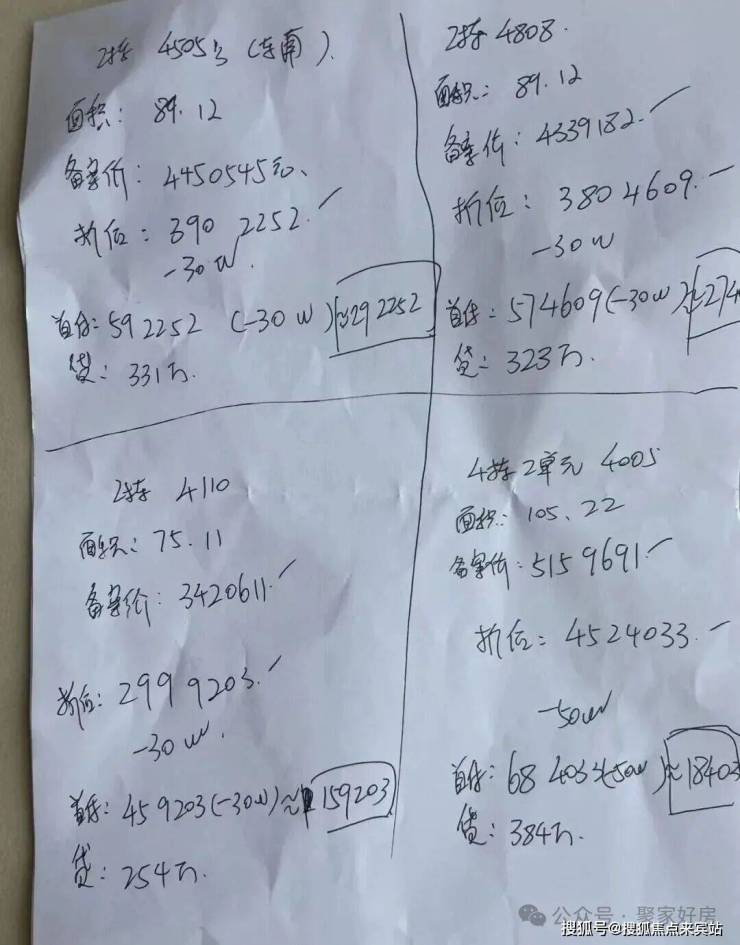 2栋 4505号（东南）.
面积： 89.12
备案价： 4450545元、
折后： 390 2252.
-30W.
首付：592252 (-30W)≈292252
贷：331万.
2栋 4808.
面积： 89.12
备案价： 4339182.
折后： 3804609.
-30W
首付：574609(-30W)≈274
贷：323万.
2栋 4110
面积：75.11
备案价：3420611.
折后：299 9203.
-30W.
首付：459203(-30W)≈159203
贷：254万.
4栋2单元 4005
面积：105.22
备案价：515 9691.
折后：4524033.
-50W
首付：68 4033(-50W)≈18403
贷：384万.
公众号·聚家好房
搜狐号@搜狐焦点来宾站